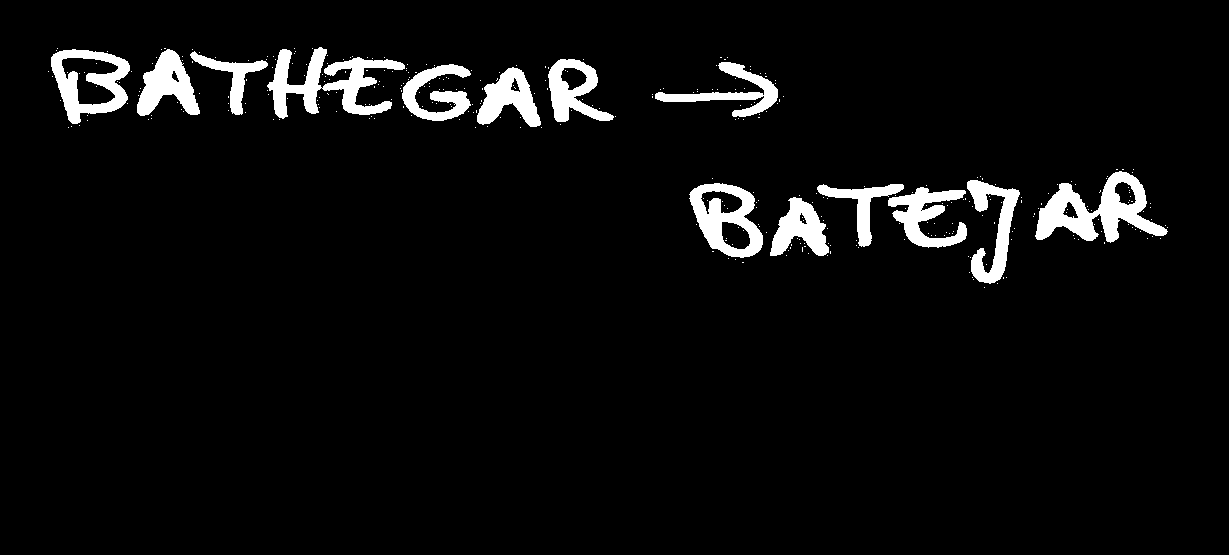 BATHEGAR →
BATEJAR